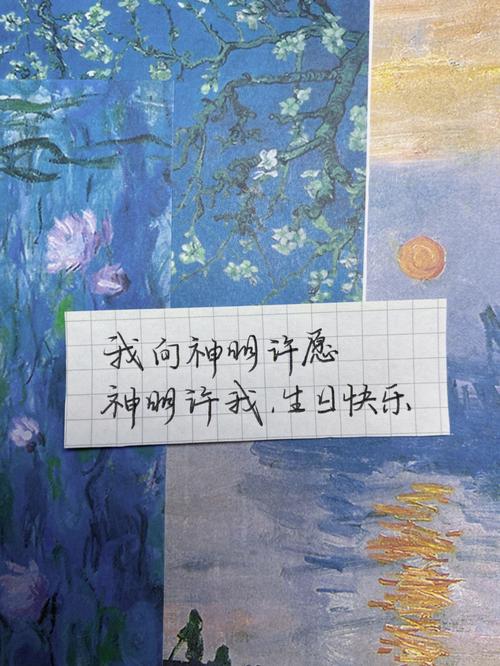 我向神明许愿
神明许我，生日快乐